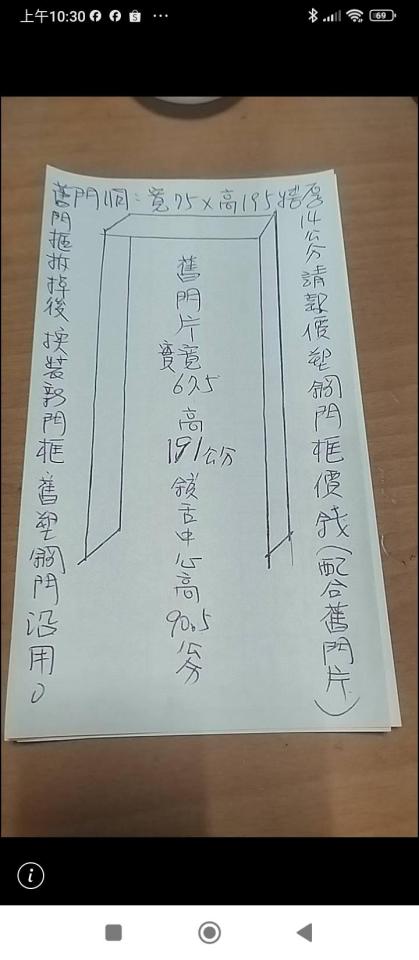 上午10:30
69
舊門洞：寬75×高195牆厚14公分請報價塑鋼門框價錢(配合舊門片)
舊門框拆掉後換裝新門框舊塑鋼門沿用。
舊門片寬67.5高191公分鎖舌中心高90.5公分
實